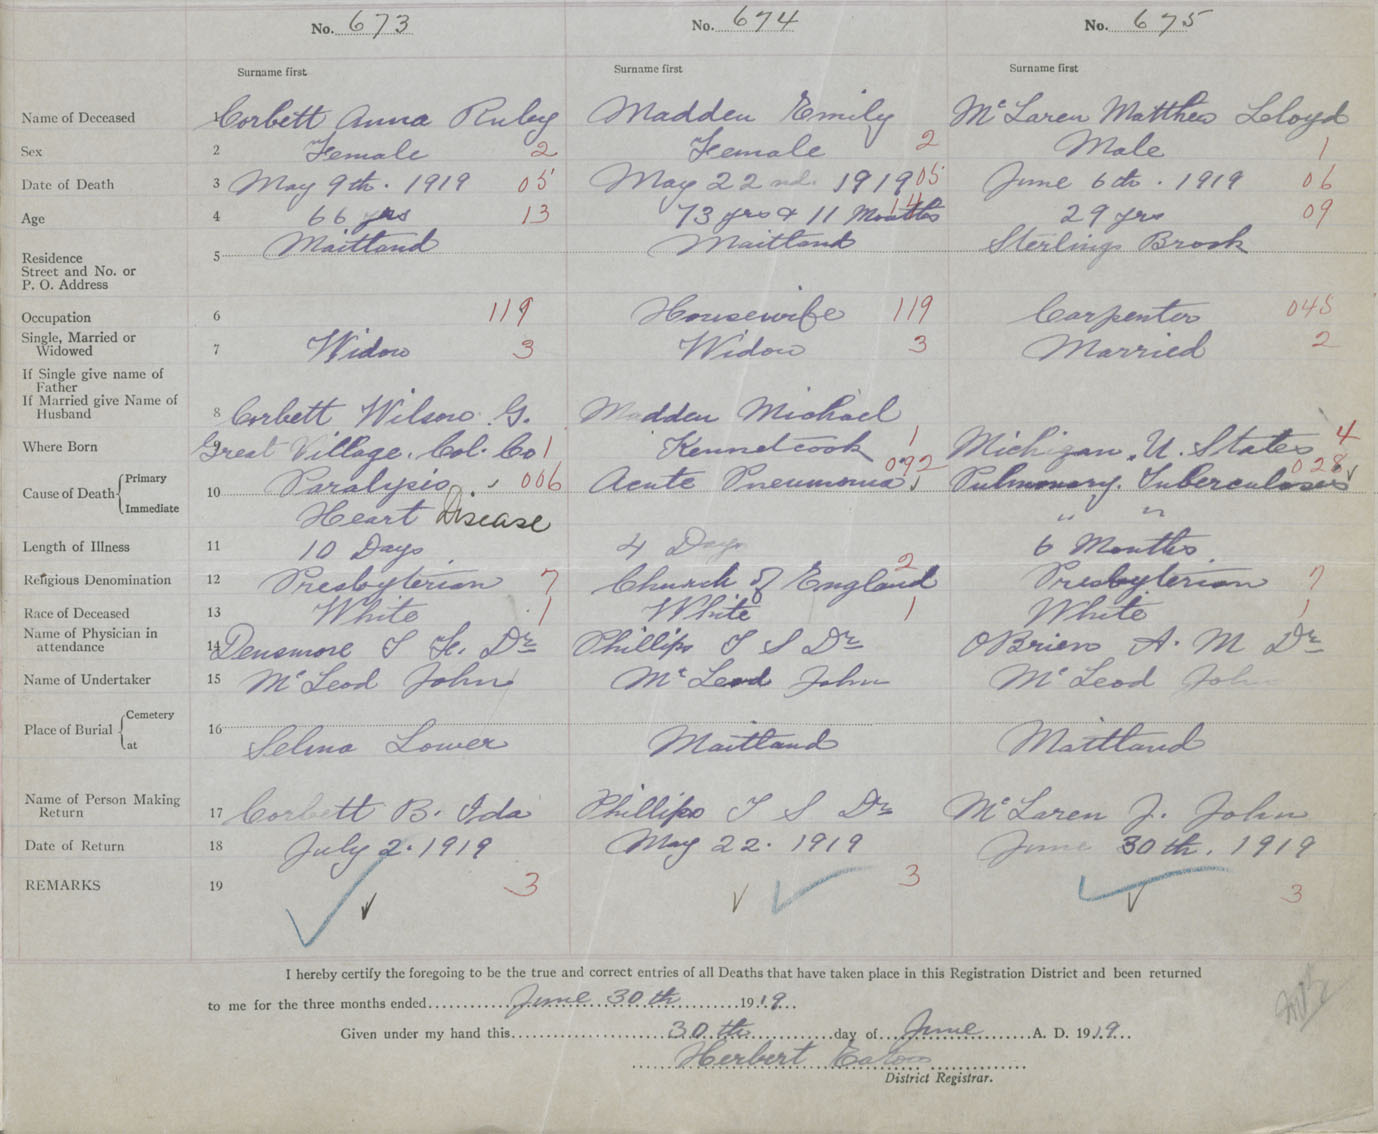 No. 673 No. 674 No. 675
Surname first Surname first Surname first
Name of Deceased 1 Corbett Anna Ruby Madden Emily McLaren Matthew Lloyd
Sex 2 Female 2 Female 2 Male 1
Date of Death 3 May 9th. 1919 05 May 22nd. 1919 05 June 6th. 1919 06
Age 4 66 yrs 13 73 yrs & 11 Months 14 29 yrs 09
Residence 5 Maitland Maitland Sterlings Brook
Street and No. or
P. O. Address
Occupation 6 119 Housewife 119 Carpenter 045
Single, Married or
Widowed 7 Widow 3 Widow 3 Married 2
If Single give name of
Father
If Married give Name of
Husband 8 Corbett Wilson G. Madden Michael
Where Born 9 Great Village. Col. Co 1 Kennetcook 1 Michigan, U. States 4
Cause of Death Primary 10 Paralysis, 006 Acute Pneumonia, 092 Pulmonary. Tuberculosis 028
Immediate Heart Disease " "
Length of Illness 11 10 Days 4 Days 6 Months
Religious Denomination 12 Presbyterian 7 Church of England 2 Presbyterian 7
Race of Deceased 13 White 1 White 1 White 1
Name of Physician in
attendance 14 Densmore F Dr Phillips T S Dr OBrien A. M Dr
Name of Undertaker 15 McLeod John McLeod John McLeod John
Place of Burial Cemetery 16
at Selma Lower Maitland Maitland
Name of Person Making
Return 17 Corbett B. Ida Phillips T S Dr McLaren J. John
Date of Return 18 July 2. 1919 May 22. 1919 June 30th. 1919
REMARKS 19 3 3 3
I hereby certify the foregoing to be the true and correct entries of all Deaths that have taken place in this Registration District and been returned
to me for the three months ended June 30th 1919.
Given under my hand this 30th day of June A. D. 1919.
Herbert Eaton
District Registrar.